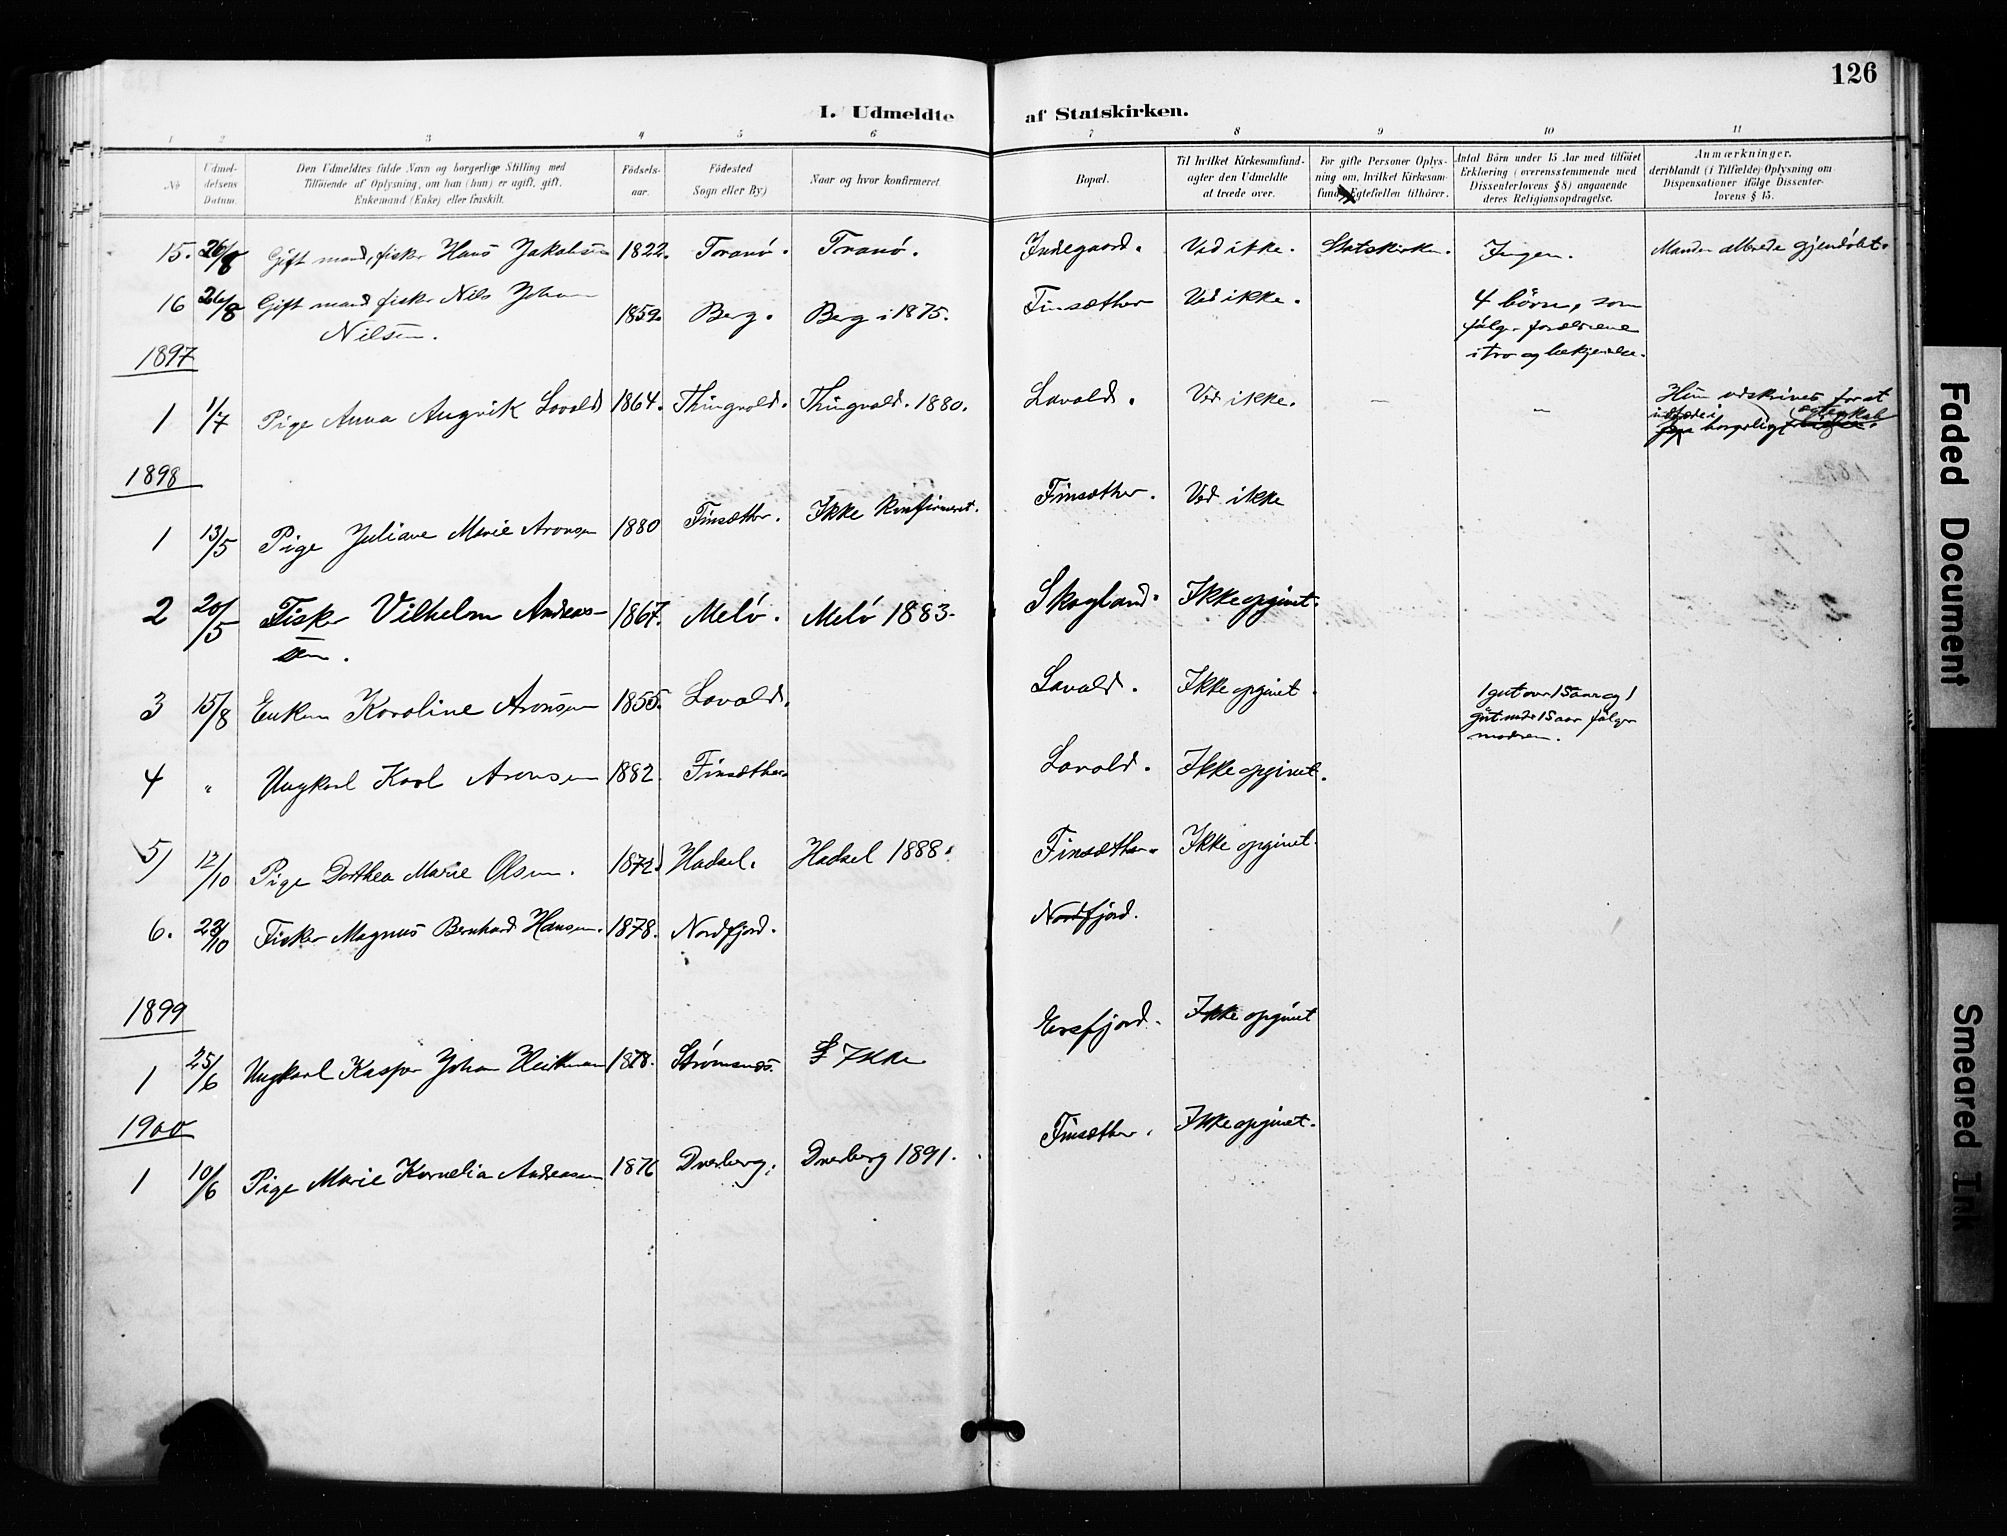 126
I. Udmeldte af Statskirken.
1 2 3 4 5 6 7 8 9 10 11
No
Udmeldelsens Datum.
Den Udmeldtes fulde Navn og borgerlige Stilling med
Tilføiende af Oplysning, om han (hun) er ugift, gift,
Enkemand (Enke) eller fraskilt.
Fødselsaar.
Fødested
(Sogn eller By)
Naar og hvor konfirmeret.
Bopæl.
Til hvilket Kirkesamfund
agter den Udmeldte
at træde over.
For gifte Personer Oplysning om, hvilket Kirkesamfund Egtefællen tilhører.
Antal Børn under 15 Aar med tilføiet
Erklæring (overensstemmende med
Dissenterlovens § 8) angaaende
deres Religionsopdragelse.
Anmærkninger,
deriblandt (i Tilfælde) Oplysning om
Dispensationer ifølge Dissenterlovens § 15.
15. 26/8 Gift mand, fisker Hans Jakobsen 1822. Tranö. Tranö. Indegaard. Ved ikke. Statskirken. Ingen. Manden allerede gjendöbt.
16 26/8 Gift mand fisker Nils Johan 1859. Berg. Berg i 1875. Finsæther Ved ikke. 4 börn, som
Nilsen. følger forældrene
i tro og bekjendelse.
1897
1 1/7 Pige Anna Angvik Lovold 1864. Thingvold. Thingvold. 1880. Lavold. Ved ikke. - - Hun udskrives for at
indtræde i borgerlig ægteskab.
1898
1 13/5 Pige Juliane Marie Aronsen 1880 Finsæther. Ikke konfirmeret. Finsæther. Ved ikke
2 20/5 Fisker Vilhelm Andreas- 1867. Melö. Melö 1883. Skogland. Ikke opgivet.
sen.
3 15/8 Enken Karoline Aronsen 1855. Lavold. Lavold. Ikke opgivet. 1 gut over 15 aar og 1
gut under 15 aar følger
modren.
4 " Ungkarl Karl Aronsen 1882. Finsæther Lavold. Ikke opgivet.
5) 12/10 Pige Dorthea Marie Olsen. 1872. Hadsel. Hadsel 1888. Finsæther. Ikke opgivet.
6. 29/10 Fisker Magnus Bernhard Hansen. 1878. Nordfjord. Nordfjord.
1899
1 25/6 Ungkarl Kasper Johan Heitman 1878. Strømsnes. Ikke Ersfjord. Ikke opgivet
1900
1 10/6 Pige Marie Kornelia Andreassen 1876 Dverberg. Dverberg 1891. Finsæther. Ikke opgivet.
Faded Document
Smeared Ink